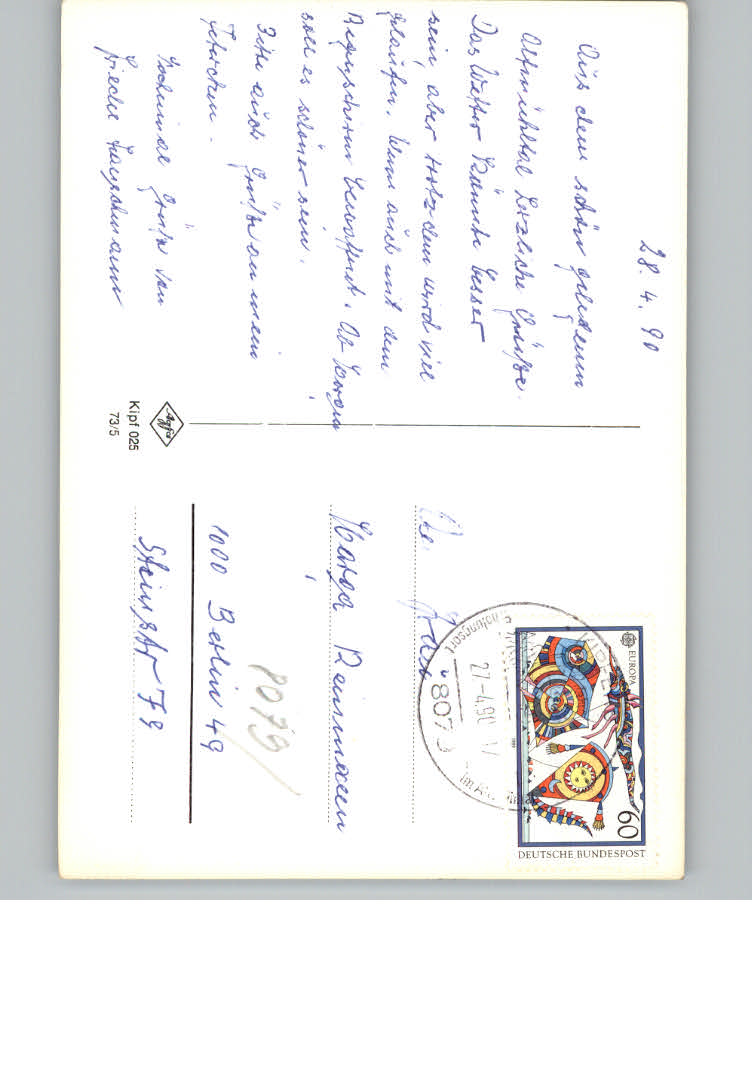 28. 4. 90
Aus dem schön gelegenen
Altmühltal herzliche Grüße.
Das Wetter könnte besser
sein, aber trotzdem wird viel
gelaufen. Wenn auch mit dem
Regenschirm bewaffnet. Ab morgen
soll es schöner sein.
Bitte auch Grüße an
Nochmal Grüße von
Agfa
Kipf 025
73/5
Frau
1000 Berlin 49
Steinstr 79
8079
EUROPA
60
DEUTSCHE BUNDESPOST
KIPFE
27-4.90
8079
Erholungsort